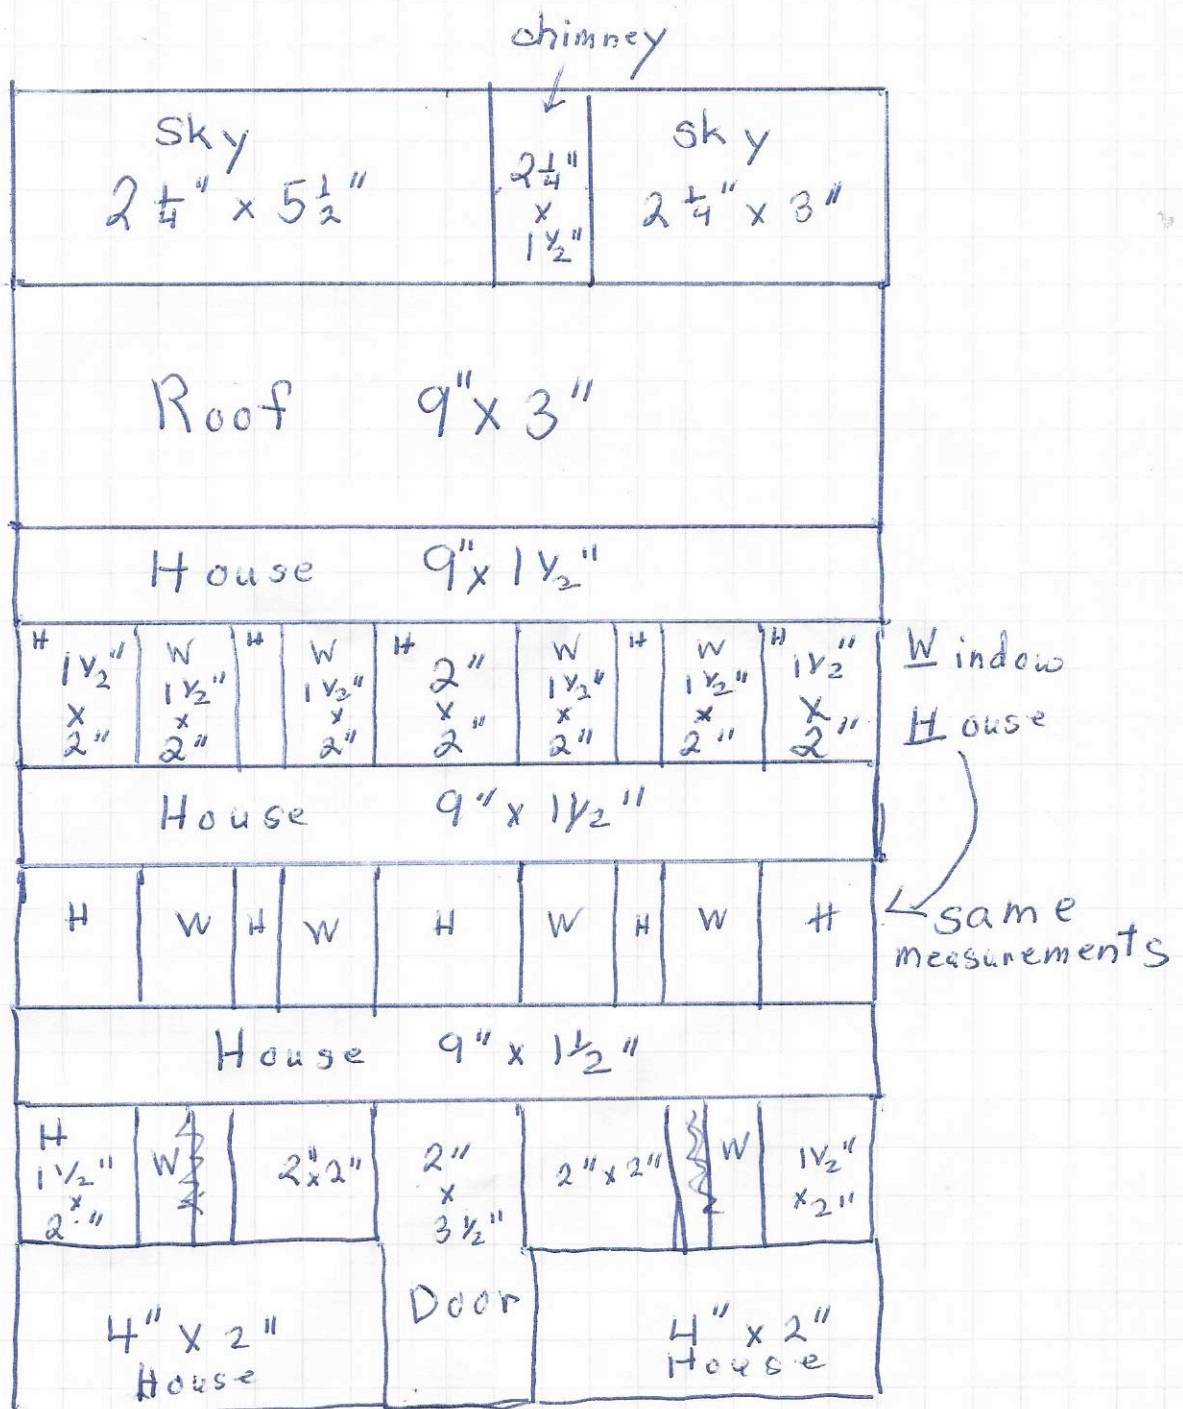 chimney
Sky
2 1/4" x 5 1/2"
2 1/4"
x
1 1/2"
Sky
2 1/4" x 3"
Roof 9" x 3"
House 9" x 1 1/2"
H
1 1/2"
x
2"
W
1 1/2"
x
2"
H
W
1 1/2"
x
2"
H
2"
x
2"
W
1 1/2"
x
2"
H
W
1 1/2"
x
2"
H
1 1/2"
x
2"
Window
House
House 9" x 1 1/2"
H W H W H W H W H
same
measurements
House 9" x 1 1/2"
H
1 1/2"
x
2"
W
2" x 2"
2"
x
3 1/2"
Door
2" x 2"
W
1 1/2"
x 2"
4" x 2"
House
4" x 2"
House